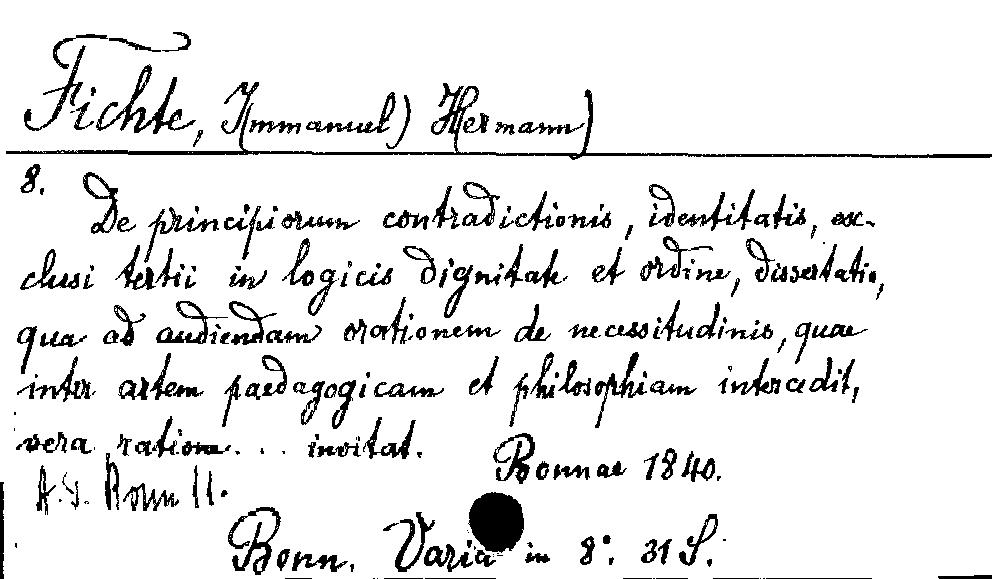 Fichte, I(mmanuel) H(ermann)
8. De principiorum contradictionis, identitatis, ex-
clusi tertii in logicis dignitate et ordine, dissertatio,
qua ad audiendam orationem de necessitudinis, quae
inter artem paedagogicam et philosophiam intercedit,
vera ratione... invitat.
Bonnae 1840.
A.S. Bonn 11.
Bonn. Varia in 8°. 31 S.